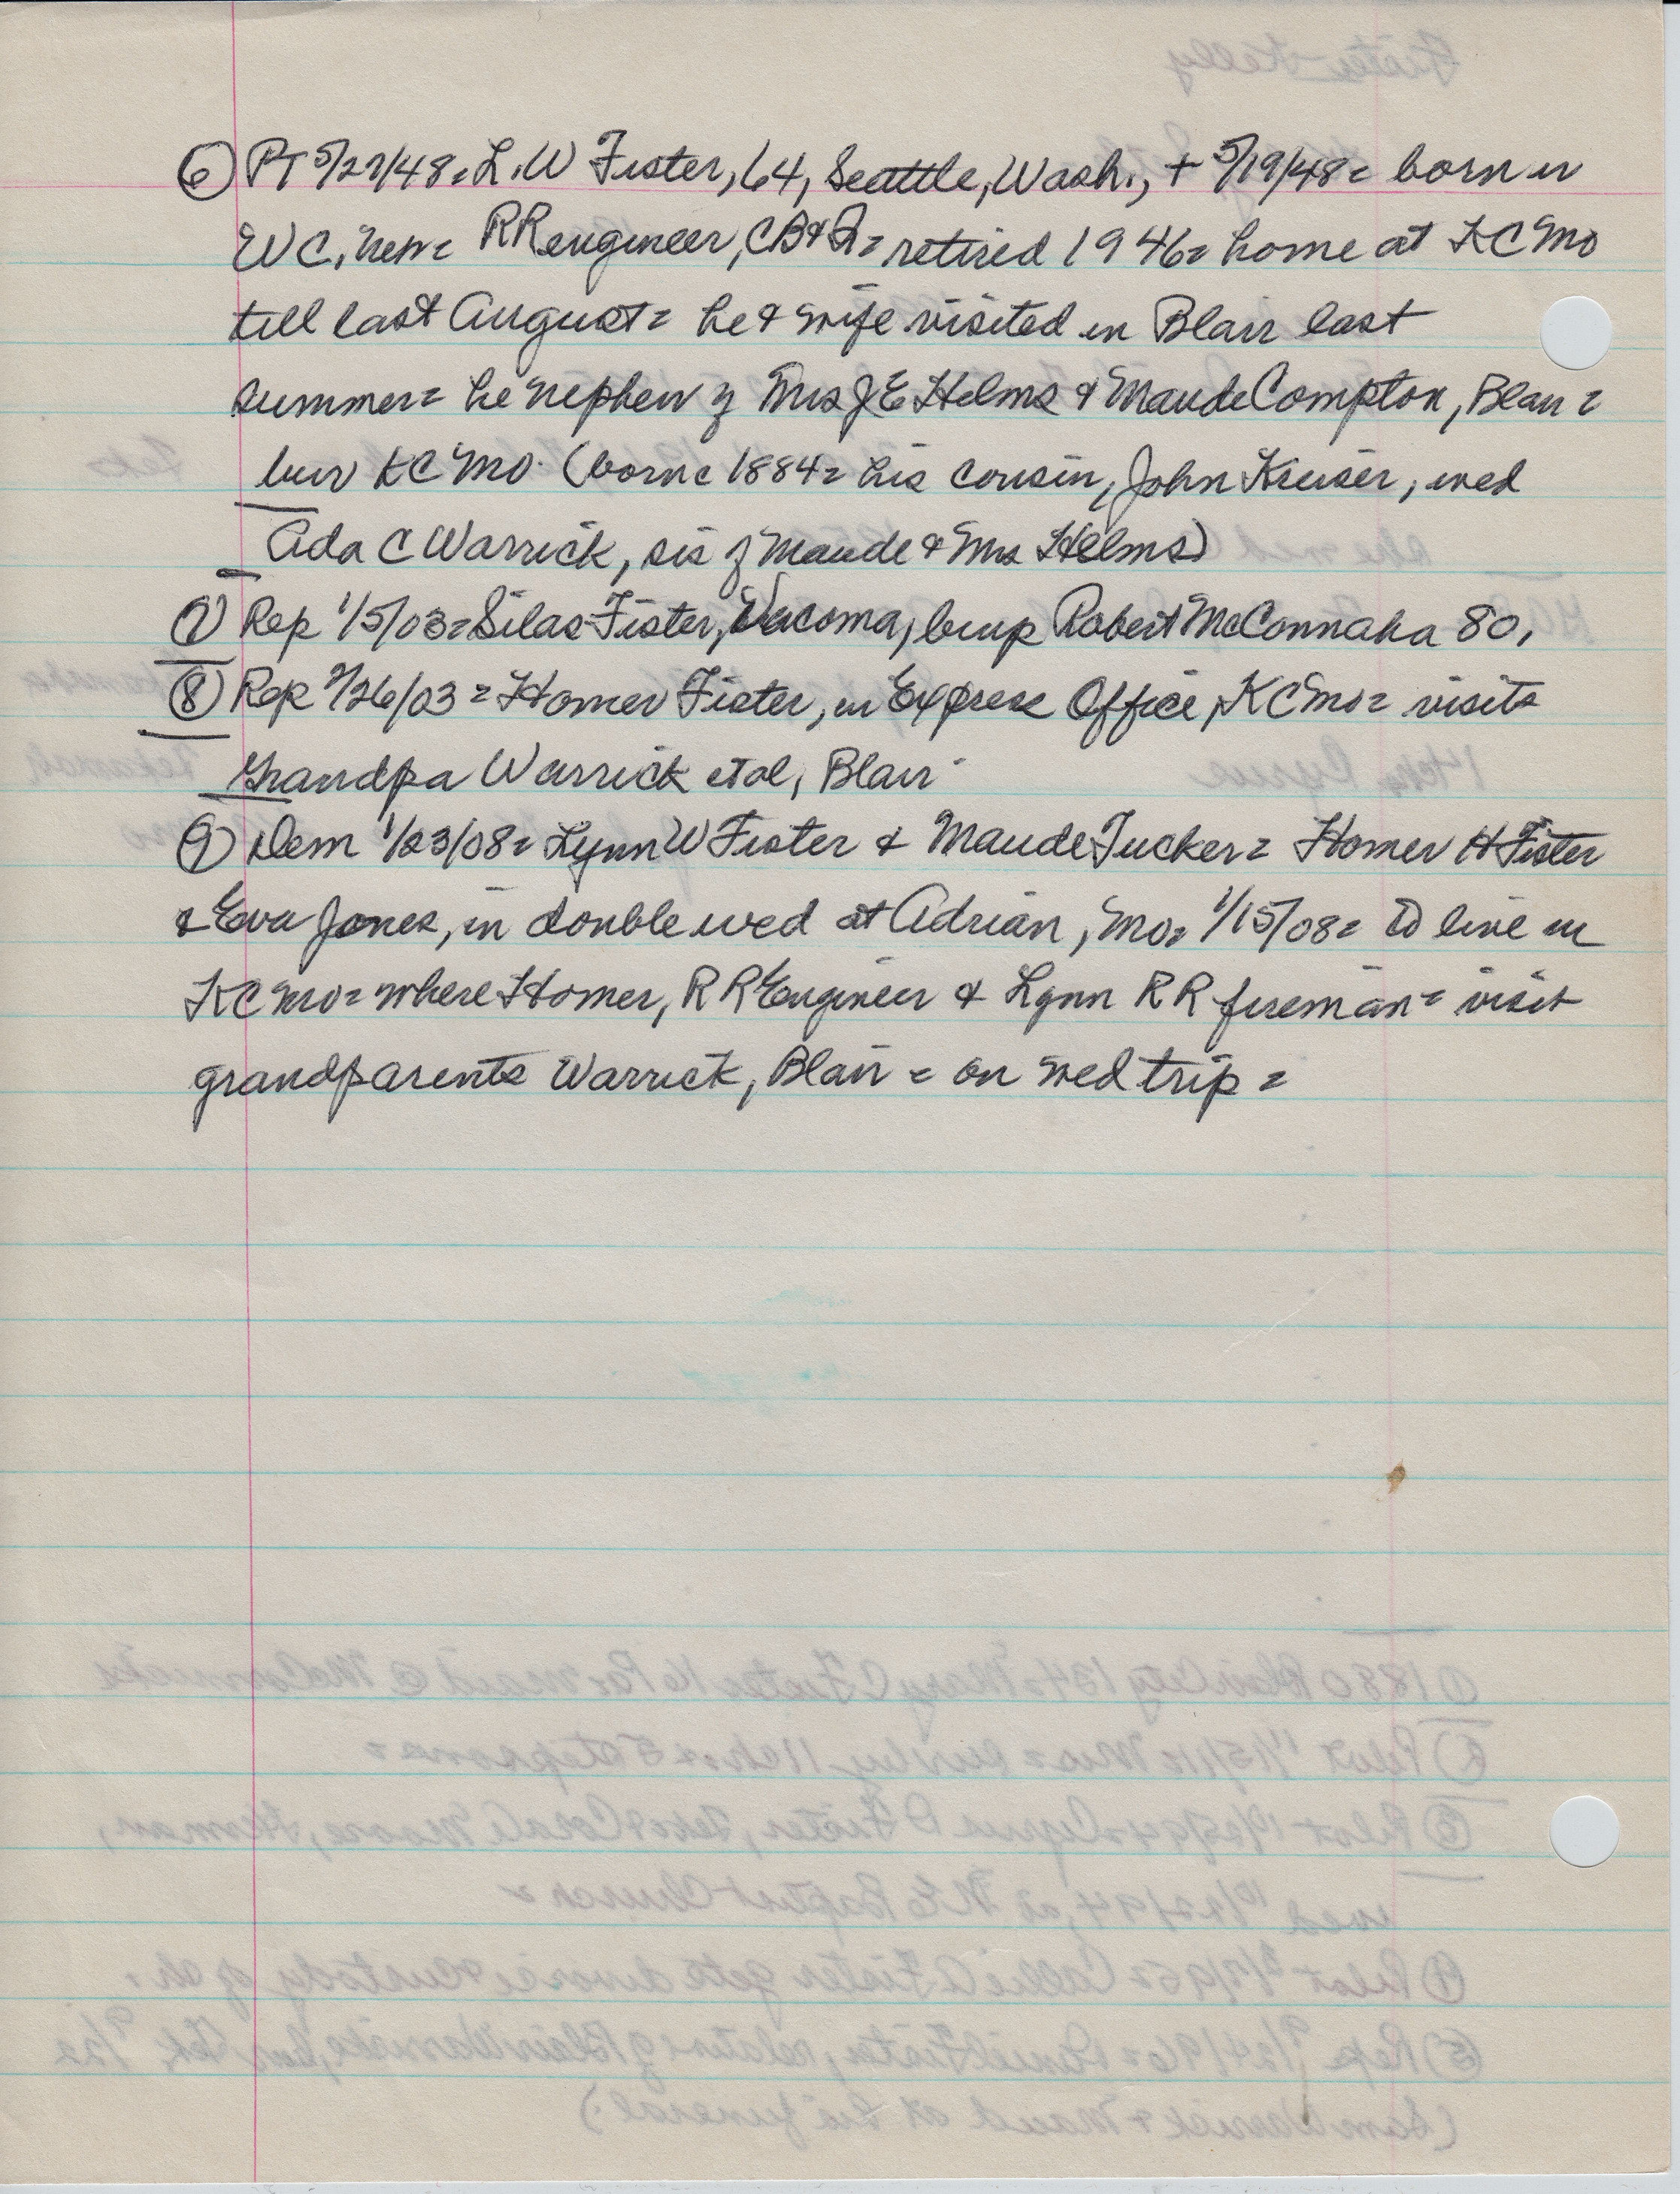 ⑥ PT 5/27/48 = L.W Fister, 64, Seattle, Wash., + 5/19/48 = born in
WC, Neb = RR engineer, CB&Q = retired 1946 = home at KC Mo
till last August = he & wife visited in Blair last
summer = he nephew of Mrs J E Helms & Maude Compton, Blair =
bur KC Mo. (born c 1884 = his cousin, John Kruser, wed
Ada C Warrick, sis of Maude & Mrs Helms)
⑦ Rep 1/5/03 = Silas Fister, Tacoma, Robert McConnaha 80,
⑧ Rep 7/26/03 = Homer Fister, in Express Office, KC Mo = visits
Grandpa Warrick et al, Blair
⑨ Dem 1/23/08 = Lynn W Fister & Maude Tucker = Homer H Fister
& Eva Jones, in double wed at Adrian, Mo, 1/15/08 = to live in
KC Mo = where Homer, RR Engineer & Lynn RR fireman = visit
grandparents Warrick, Blair = on wed trip =